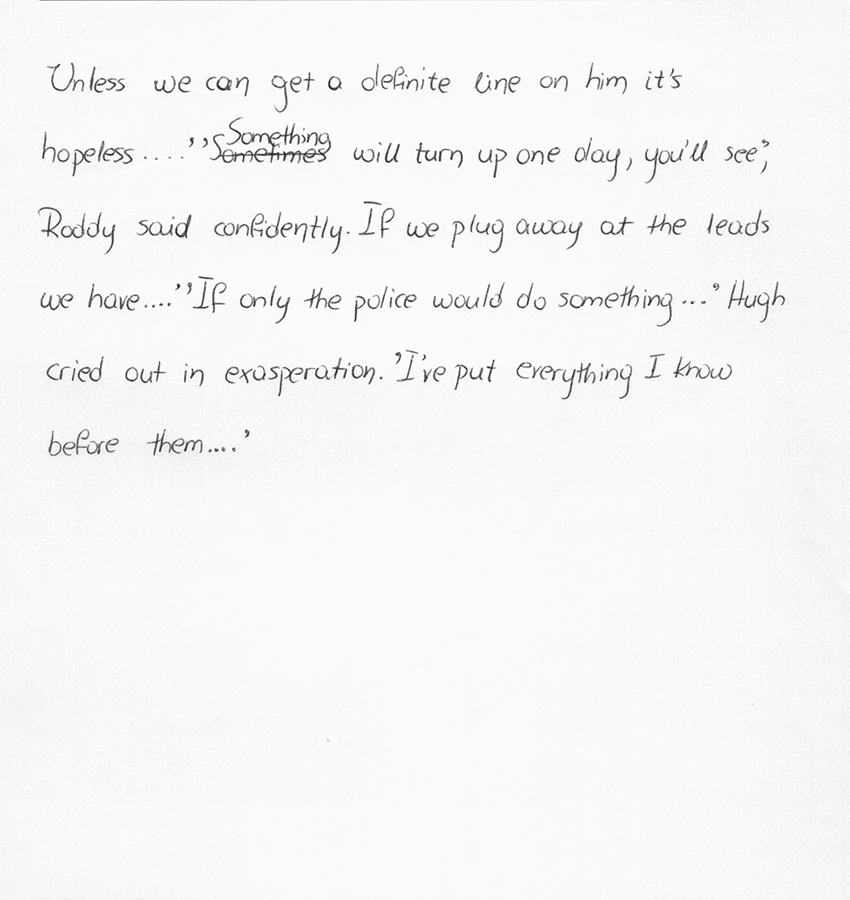 Unless we can get a definite line on him it's
hopeless ....' 'Something will turn up one day, you'll see',
Roddy said confidently. If we plug away at the leads
we have....' 'If only the police would do something...' Hugh
cried out in exasperation. 'I've put everything I know
before them....'